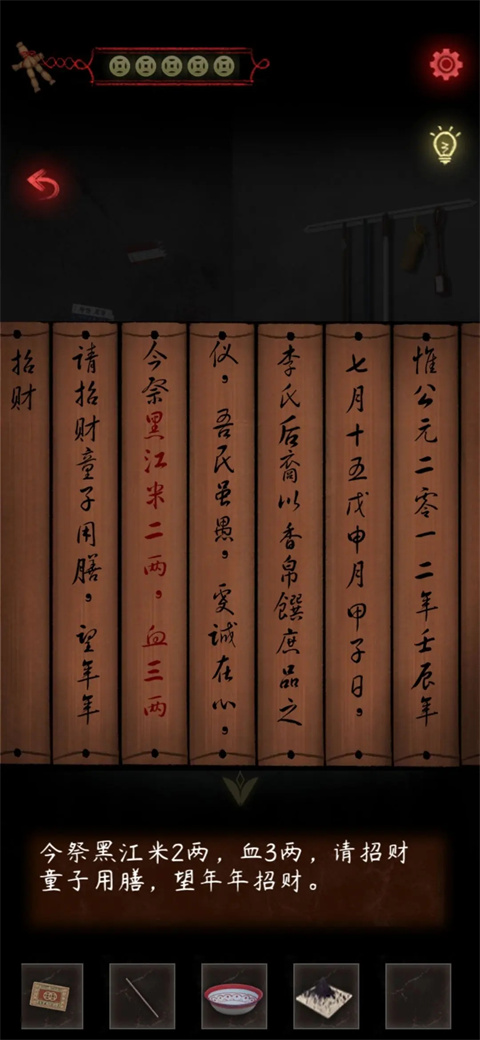 惟公元二零一二年壬辰年
七月十五戊申月甲子日，
李氏后裔以香帛馔庶品之
仪，吾民虽愚，虔诚在心，
今祭黑江米二两，血三两
请招财童子用膳，望年年
招财
今祭黑江米2两，血3两，请招财
童子用膳，望年年招财。